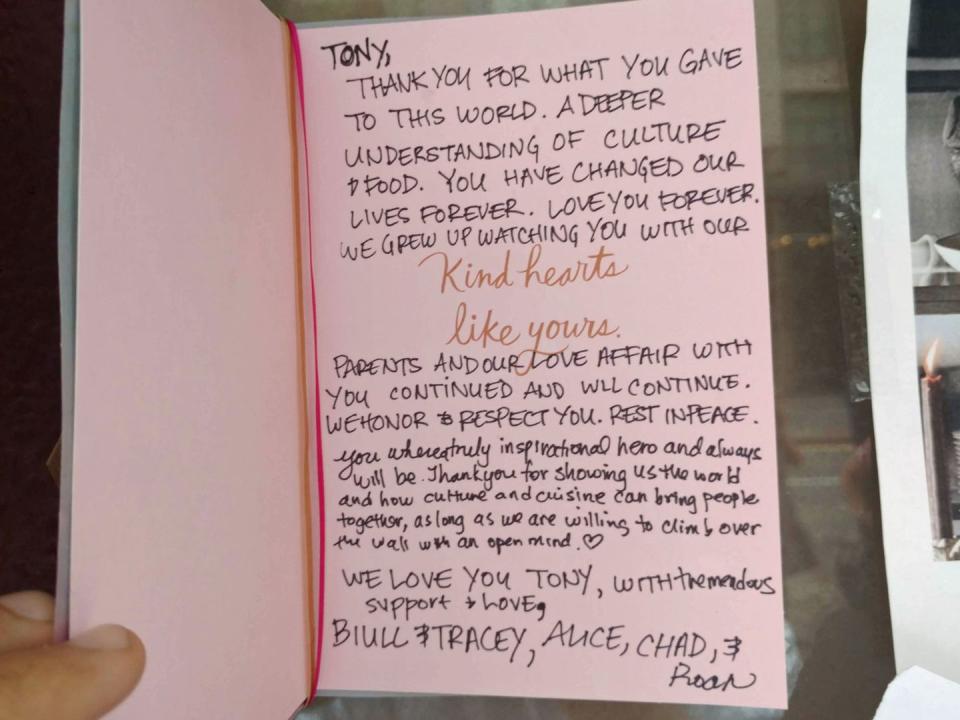 TONY,
THANK YOU FOR WHAT YOU GAVE
TO THIS WORLD. A DEEPER
UNDERSTANDING OF CULTURE
& FOOD. YOU HAVE CHANGED OUR
LIVES FOREVER. LOVE YOU FOREVER.
WE GREW UP WATCHING YOU WITH OUR
Kind hearts
like yours.
PARENTS AND OUR LOVE AFFAIR WITH
YOU CONTINUED AND WLL CONTINUE.
WE HONOR & RESPECT YOU. REST IN PEACE.
you where truly inspirational hero and always
will be. Thank you for showing us the world
and how culture and cuisine can bring people
together, as long as we are willing to climb over
the wall with an open mind. ♡
WE LOVE YOU TONY, WITH tremendous
support & LOVE,
BIULL & TRACEY, ALICE, CHAD, &
Roan